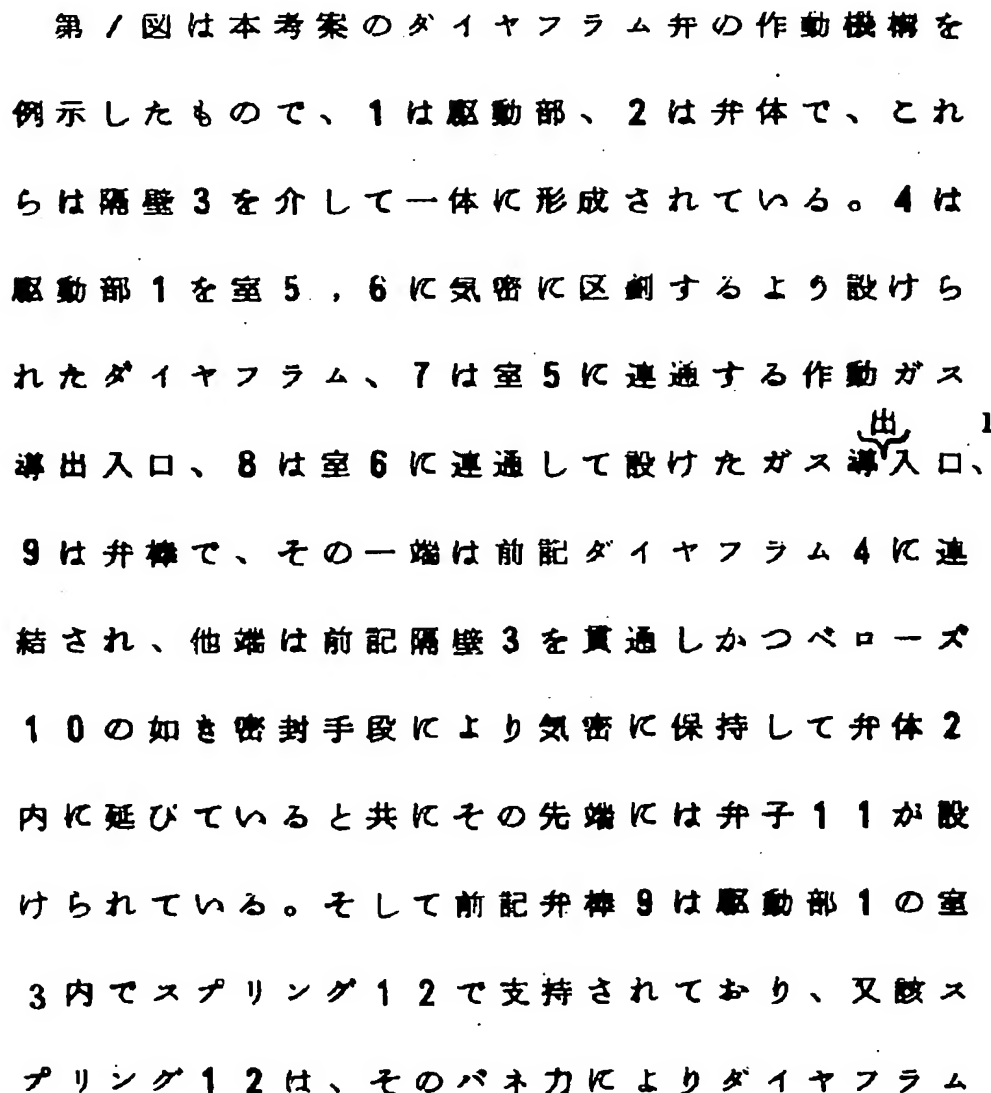 第1図は本考案のダイヤフラム弁の作動機構を
例示したもので、1は駆動部、2は弁体で、これ
らは隔壁3を介して一体に形成されている。4は
駆動部1を室5,6に気密に区劃するよう設けら
れたダイヤフラム、7は室5に連通する作動ガス
出 1
導出入口、8は室6に連通して設けたガス導入口、
9は弁棒で、その一端は前記ダイヤフラム4に連
結され、他端は前記隔壁3を貫通しかつベローズ
10の如き密封手段により気密に保持して弁体2
内に延びていると共にその先端には弁子11が設
けられている。そして前記弁棒9は駆動部1の室
3内でスプリング12で支持されており、又該ス
プリング12は、そのバネ力によりダイヤフラム